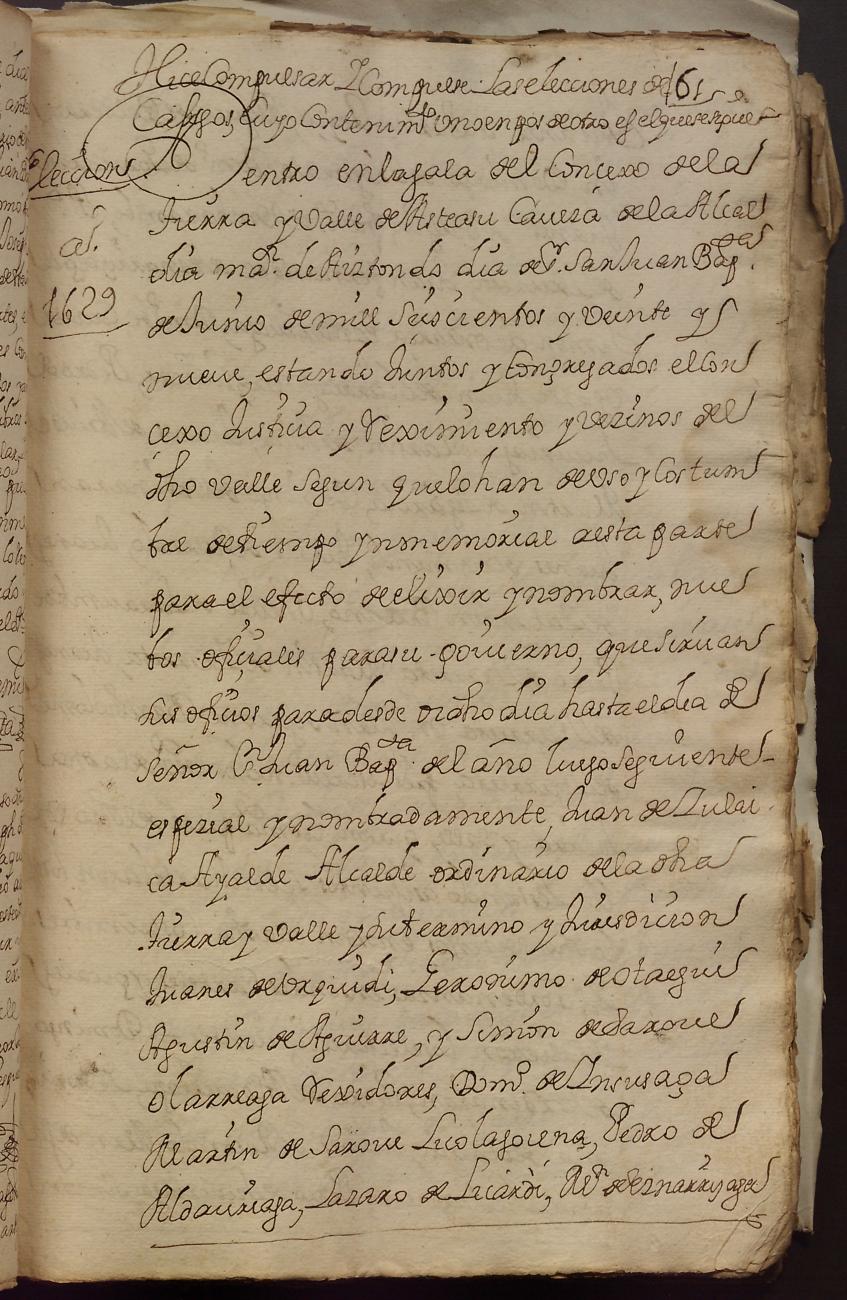 Hice Compulsar y Compulse Las elecciones de
161
Cargos, Cuyo Contenimto vno en pos de otro es el que se sigue
Elecciones
Dentro en la sala del Concexo de la
tierra y Valle de Asteasu Caueza de la Alcal
añ.
dia maor. de Aiztondo dia de Sr. San Juan Bapta.
1629
de Junio de mill Seiscientos y Veinte y
nueue, estando Juntos y Congregados el Con
cexo Justicia y Reximiento y vezinos del
dho valle segun que lo han de vso y Costum
bre de tiempo ynmemorial a esta parte
para el efecto de elixir y nombrar, nue
bos oficiales para su gouierno, que siruan
sus oficios para desde oi dho dia hasta el dia de
señor Sn Juan Bapta. del año luego seguiente
espezial y nombradamente, Juan de Zulai
ca Ayalde Alcalde ordinario de la dha
tierra y valle y su termino y Jurisdicion
Juanes de Urquidi, Geronimo de Otaegui
Agustin de Aguirre, y Simon de Saroue
olarreaga Rexidores, Domo. de Insusaga
Martin de Saroue Licolagoiena, Pedro de
Aldauriaga, Lazaro de Licardi, Mrn de Eznarrizaga